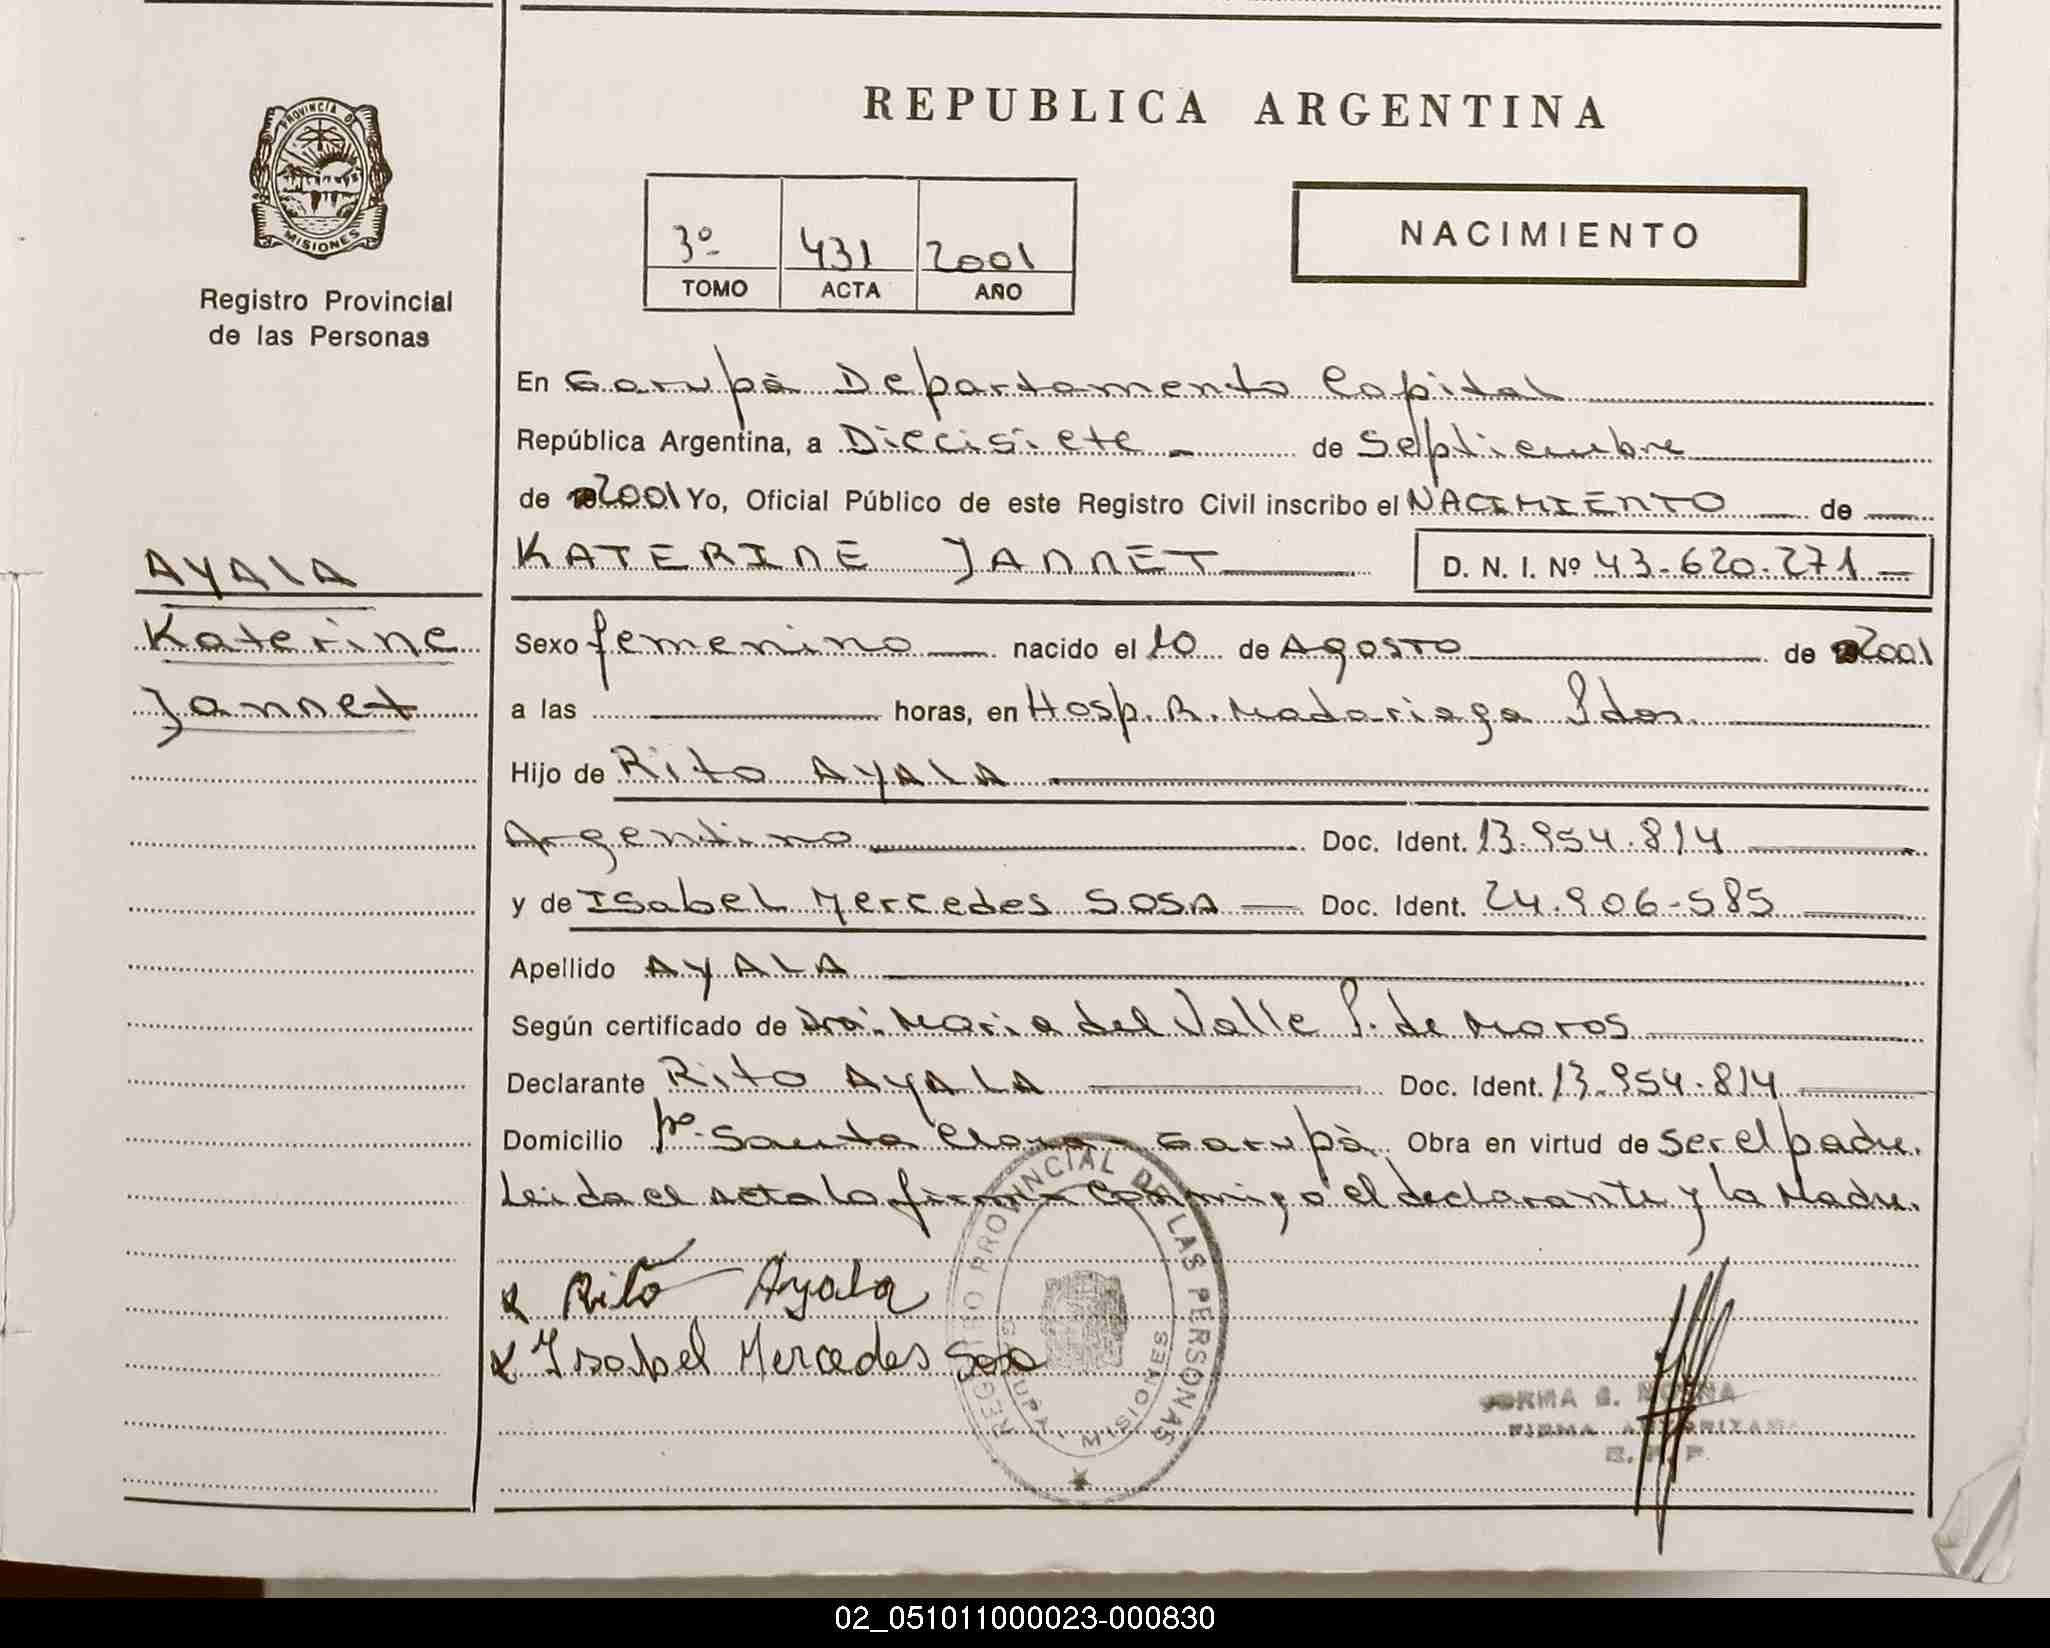 REPUBLICA ARGENTINA
PROVINCIA DE
MISIONES
Registro Provincial
de las Personas
3º 431 2001
TOMO ACTA AÑO
NACIMIENTO
En Garupá Departamento Capital
República Argentina, a Diecisiete de Septiembre
de 2001 Yo, Oficial Público de este Registro Civil inscribo el NACIMIENTO de
KATERINE JANNET D. N. I. Nº 43-620-271
AYALA
Katerine
Jannet
Sexo femenino nacido el 10 de Agosto de 2001
a las horas, en Hosp. R. Madariaga Pdas.
Hijo de Rito AYALA
Argentino Doc. Ident. 13.954.814
y de Isabel Mercedes SOSA Doc. Ident. 24.906-585
Apellido AYALA
Según certificado de Dra. Maria del Valle P. de Moros
Declarante Rito AYALA Doc. Ident. 13.954.814
Domicilio Bº Santa Clara - Garupá. Obra en virtud de Ser el padre.
Leida el acta la firman conmigo el declarante y la Madre.
x Rito Ayala
x Isabel Mercedes Sosa
REGISTRO PROVINCIAL DE LAS PERSONAS
MISIONES
FIRMA AUTORIZADA
02_051011000023-000830